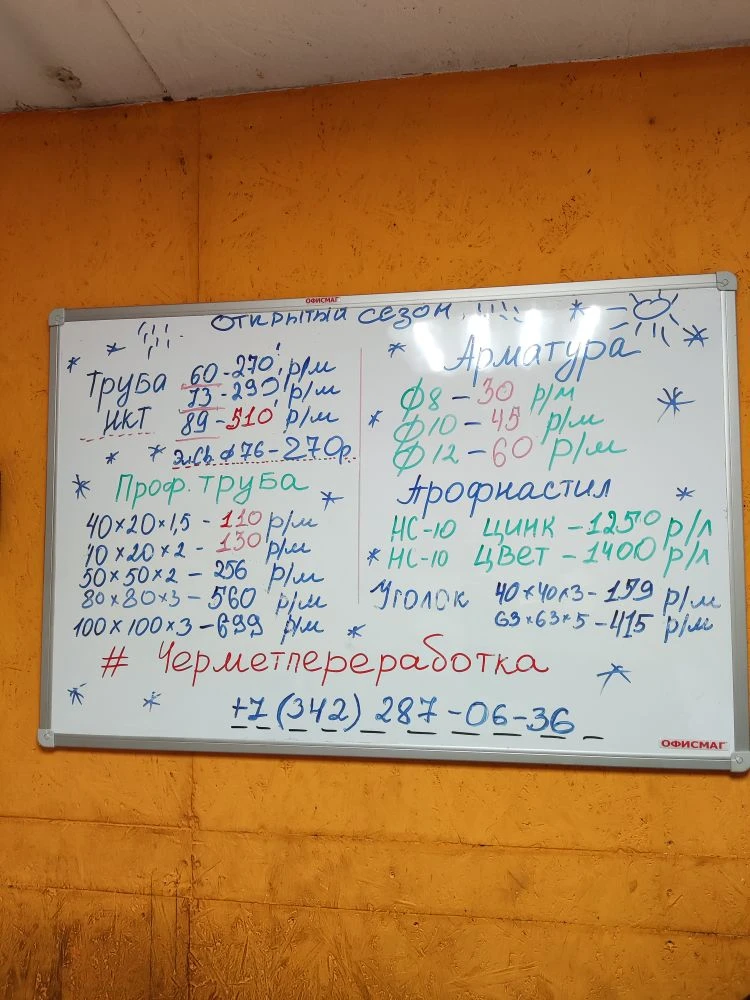 ОФИСМАГ
ОТКРЫТЫЙ СЕЗОН
ТРУБА НКТ
60-270 р/м
73-290 р/м
89-510 р/м
эл.св. ф76-270р.
Проф. труба
40×20×1,5 - 110 р/м
40×20×2 - 130 р/м
50×50×2 - 256 р/м
80×80×3-560 р/м
100×100×3-699 р/м
Арматура
Ф8-30 р/м
Ф10-45 р/м
Ф12-60 р/м
Профнастил
НС-10 цинк -1250 р/л
НС-10 цвет -1400 р/л
Уголок
40×40×3-159 р/м
63×63×5-415 р/м
# Черметпереработка
+7 (342) 287-06-36
ОФИСМАГ